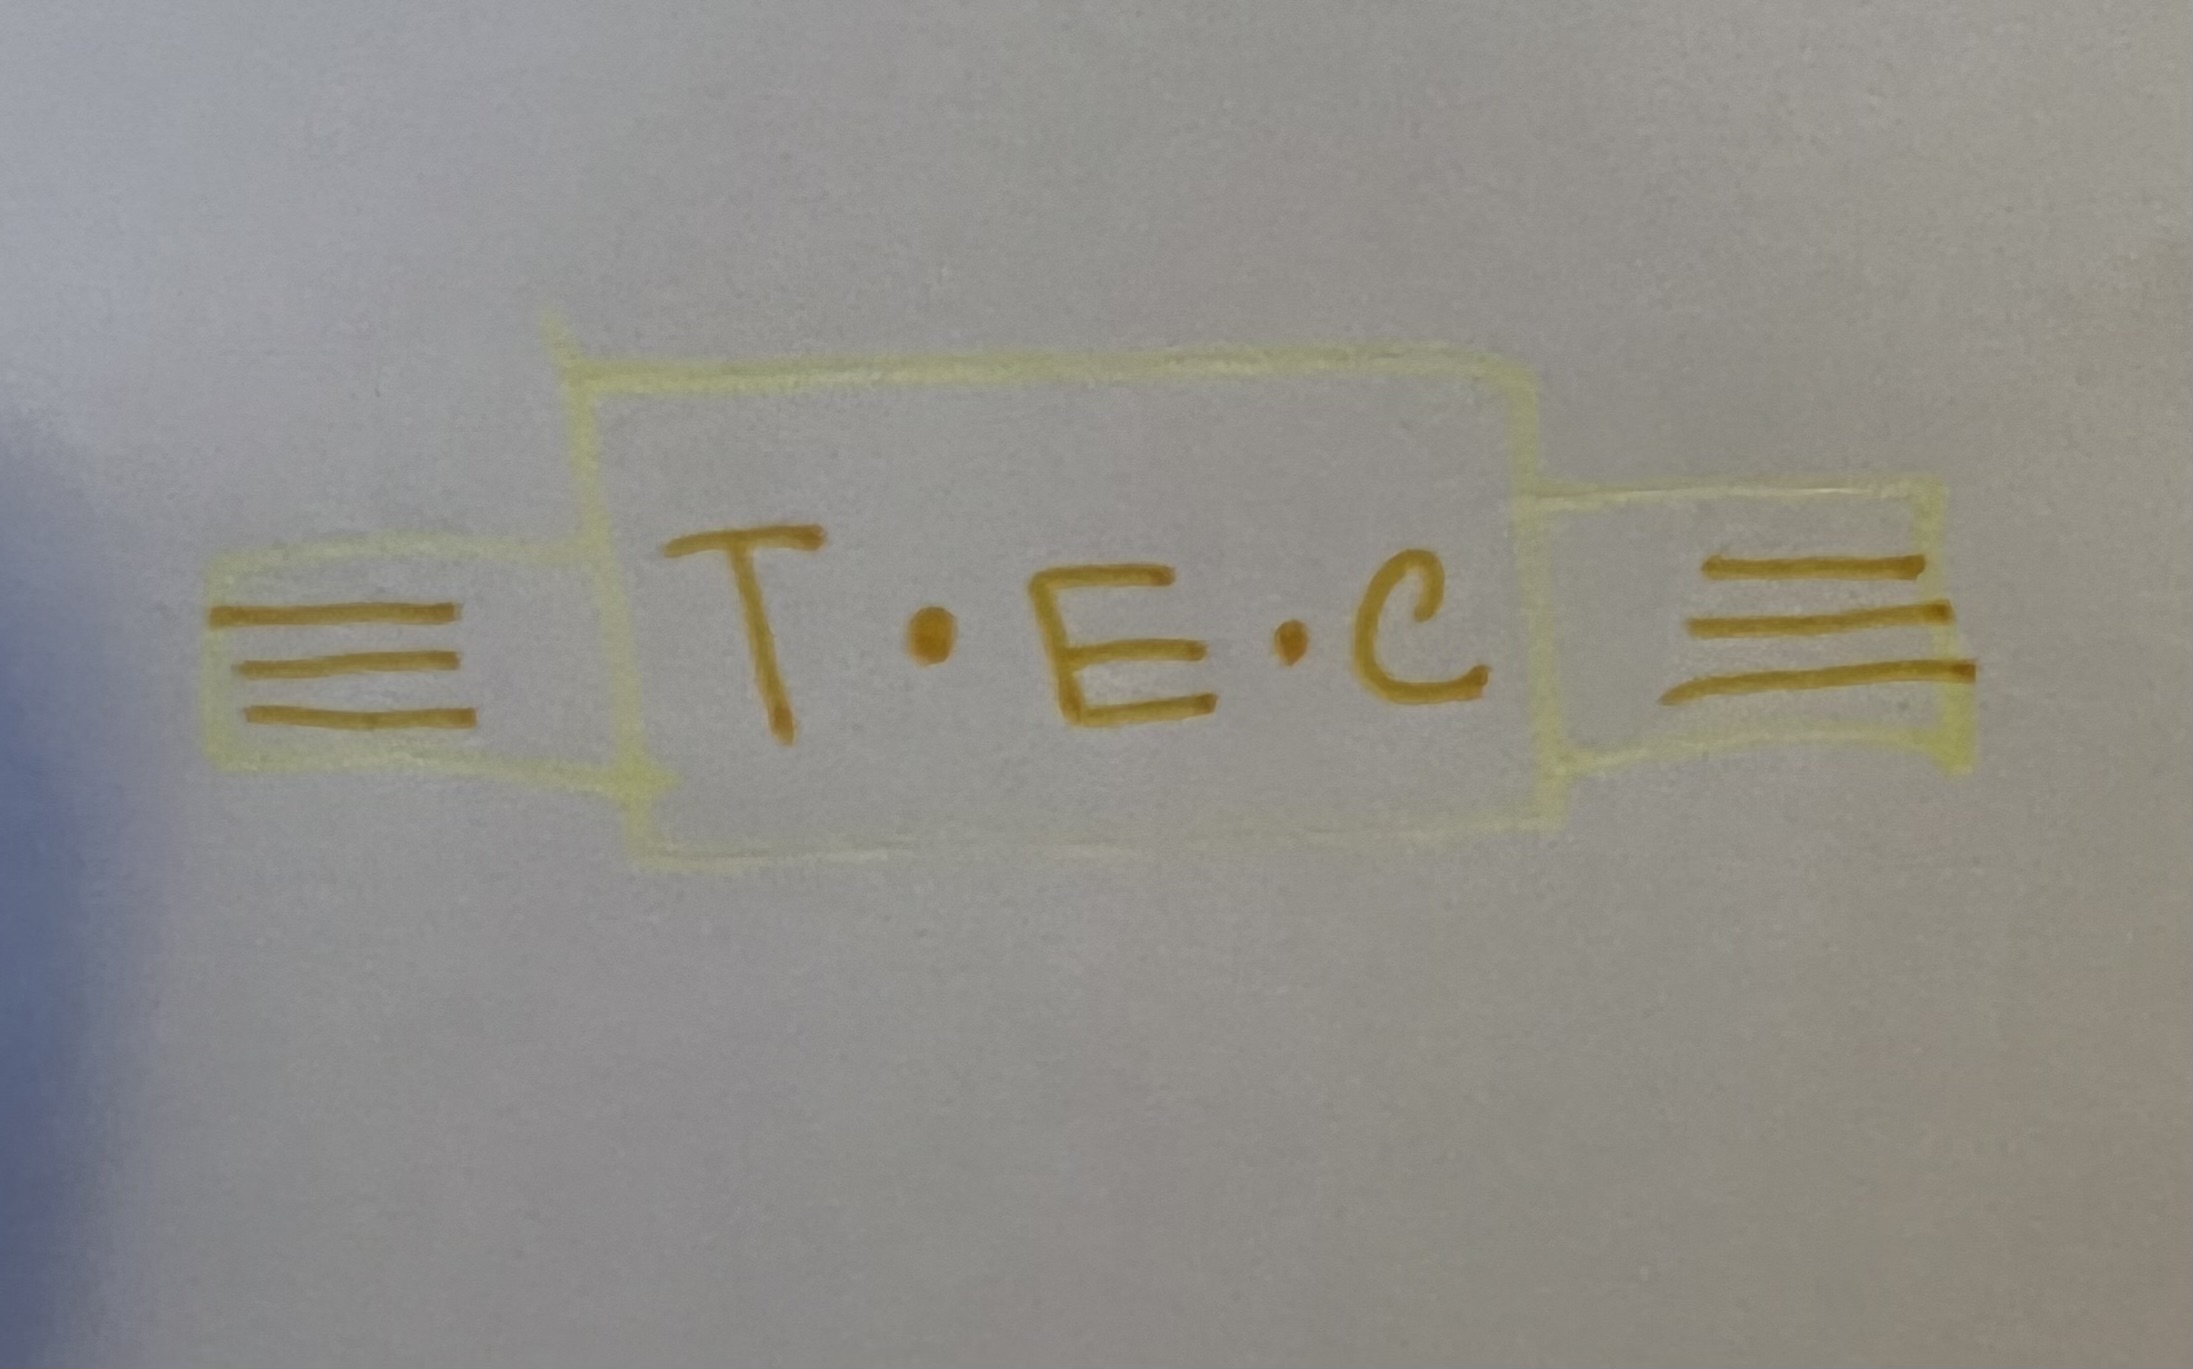 T·E·C